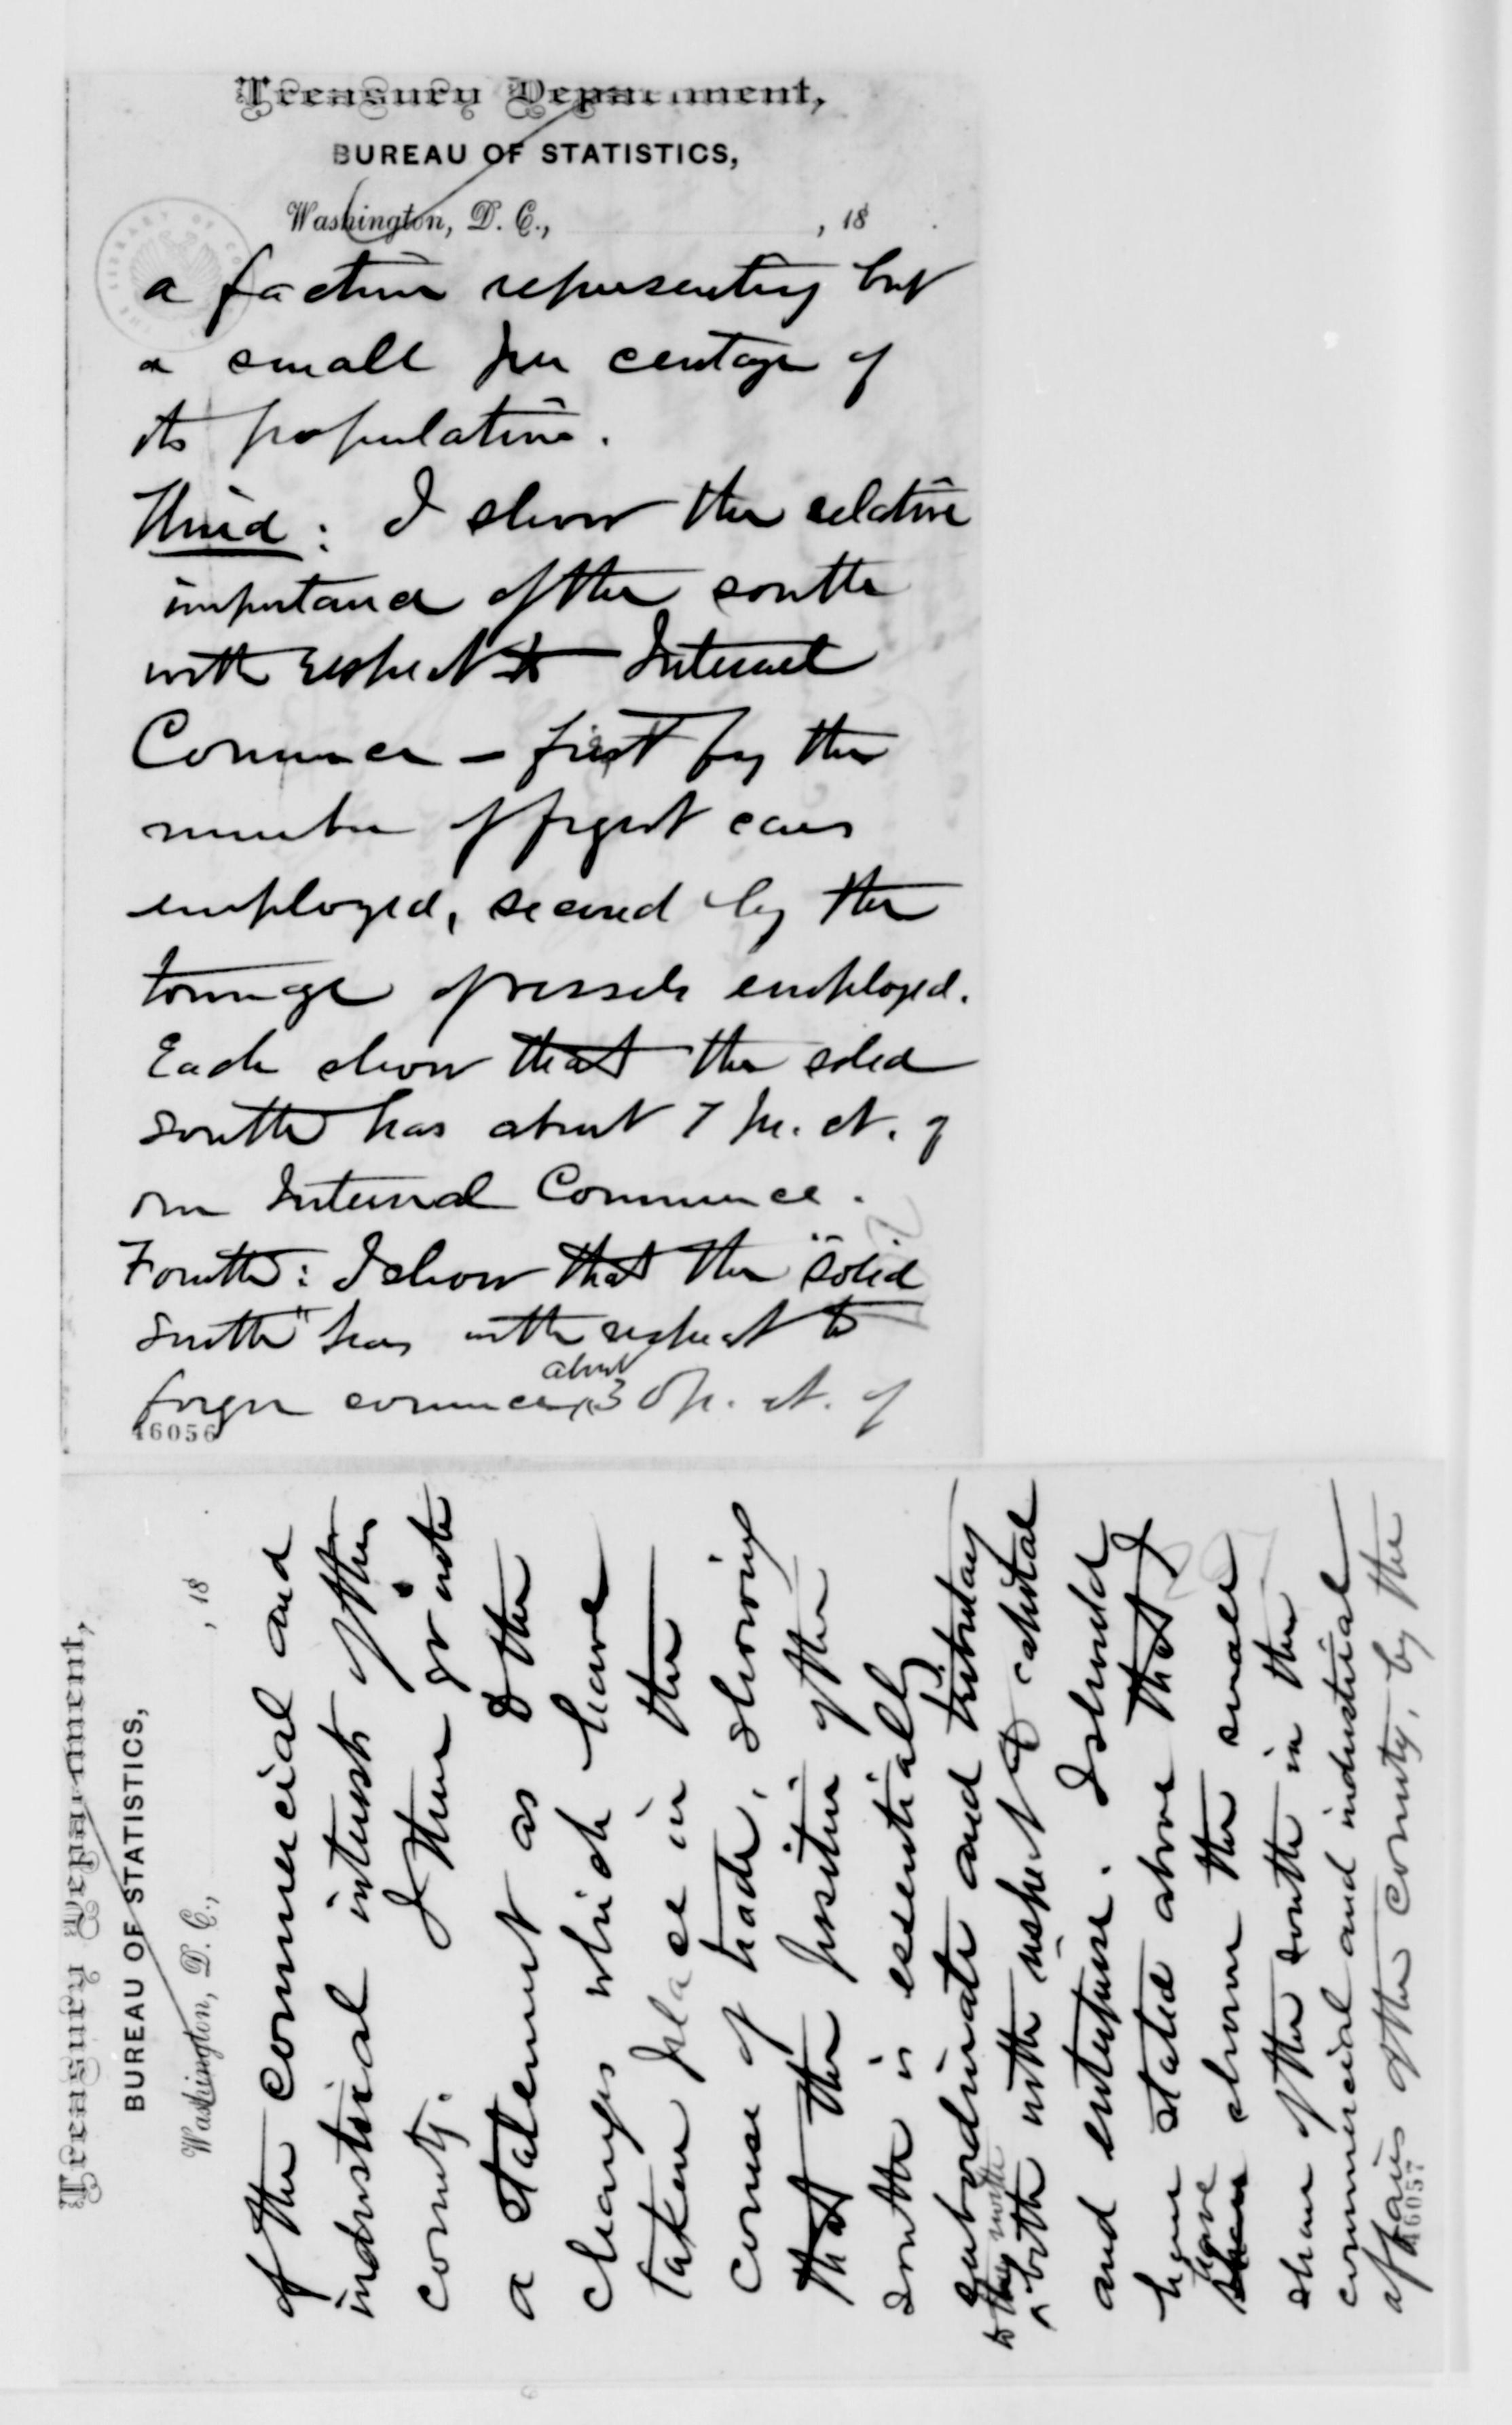 Treasury Department,
BUREAU OF STATISTICS,
Washington, D. C., , 18
a faction representing but
a small per centage of
its population.
Third: I show the relative
importance of the south
with respect to Internal
Commerce - first by the
number of freight cars
employed, second by the
tonnage of vessels employed.
Each show that the solid
south has about 7 per. ct. of
our Internal Commerce.
Fourth: I show that the "solid
south" has with respect to
about
foreign commerce 30 p. ct. of
46056
Treasury Department,
BUREAU OF STATISTICS,
Washington, D. C., , 18
of the commercial and
industrial interests of the
county. I then
a statement as to the
changes which have
taken place in the
course of trade, showing
that the position of the
south is essentially
subordinate and tributary
to the north
both with respect to capital
and enterprise. I should
have stated above that I
have
shown the small
share of the south in the
commercial and industrial
affairs of the county, by the
46057